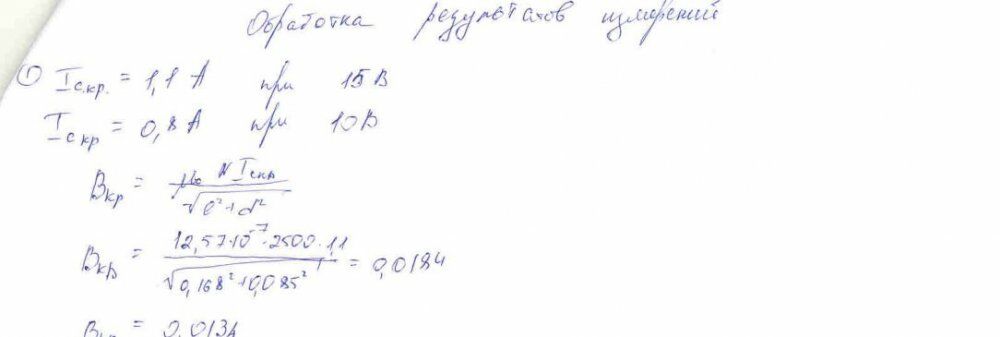 Обработка результатов измерений
① Iс.кр. = 1,1 А при 15 В
Iс кр = 0,8 А при 10 В
Bкр = μ₀ N Iскр / √(l² + d²)
Bкр = 12,57·10⁻⁷·2500·1,1 / √(0,168² + 0,085²) = 0,0184
= 0,0134